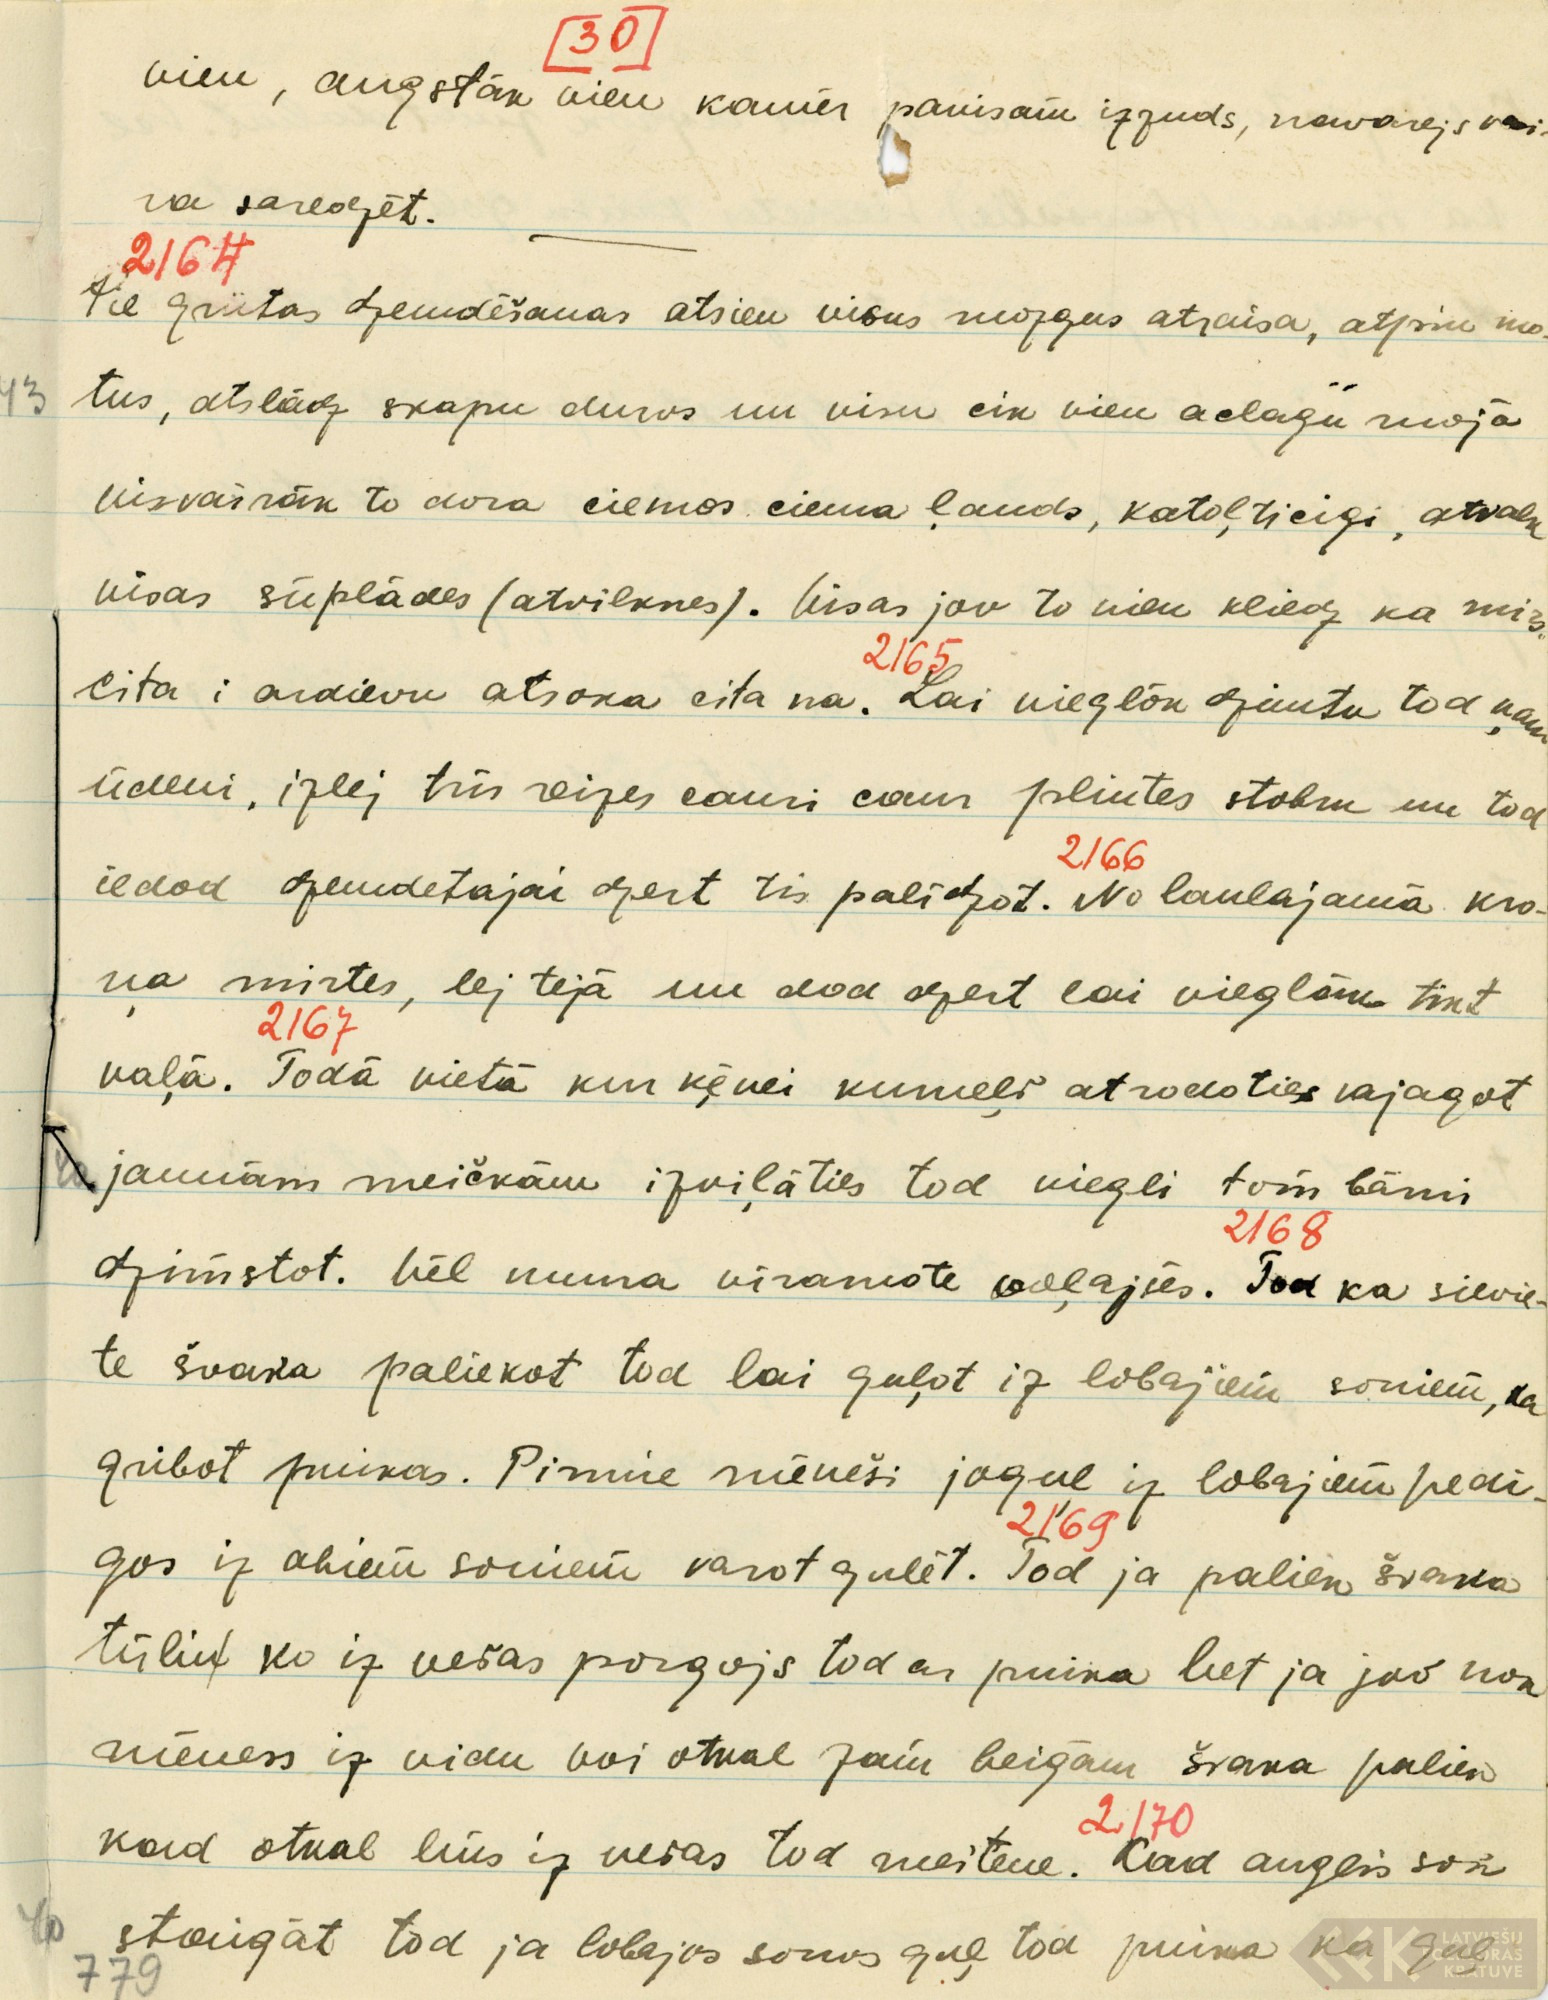 [30]
vien, augstāk vien kamēr pavisam izzuds, nevarejs vai-
ra saredzēt.
2164
Pie grūtas dzemdēšanas atsien visus mozgus atraisa, atpin mo-
43 tus, atslādz skapu durvs un visu cik vien aclāgū mojā
visvairāk to dora ciemos ciema ļauds, katoļticigi, atvalk
visas šūplādes (atvilknes). Visas jov to vien kliedz ka mirs.
2165
cita i ardievu atsoka cita na. Lai vieglōk dzimtu tod ņam
ūdeni, izlej trīs reizes cauri caur plintes stobru un tod
2166
iedod dzemdetajai dzert tis palīdzot. No laulajamā kro-
ņa mirtes, lej tejā un dod dzert lai vieglāk tikt
2167
vaļā. Todā vietā kur ķēvei kumeļš atrodoties vajagot
jaunām meičkām izviļāties tod viegli tom bārni
2168
dzimstot. Vēl nuna viramōte voļajsēs. Tod ka sievie-
te švaka paliekot tod lai guļot iz lobajiem soniem, ka
gribot puikas. Pirmie mēneši jogul iz lobajiem pedi-
2169
gos iz abiem soniem varot gulēt. Tod ja paliek švaka
tūliņ ko iz vešas porgojs tod ar puika bet ja jov nok
mēness iz vidu voi otkal zam beigām švaka paliek
2170
kad otkal būs iz vešas tod meitene. Kad auglis sok
40 staigāt tod ja lobajos sonos guļ tod puika ka guļ
779
LATVIEŠU
KULTŪRAS
KRĀTUVE